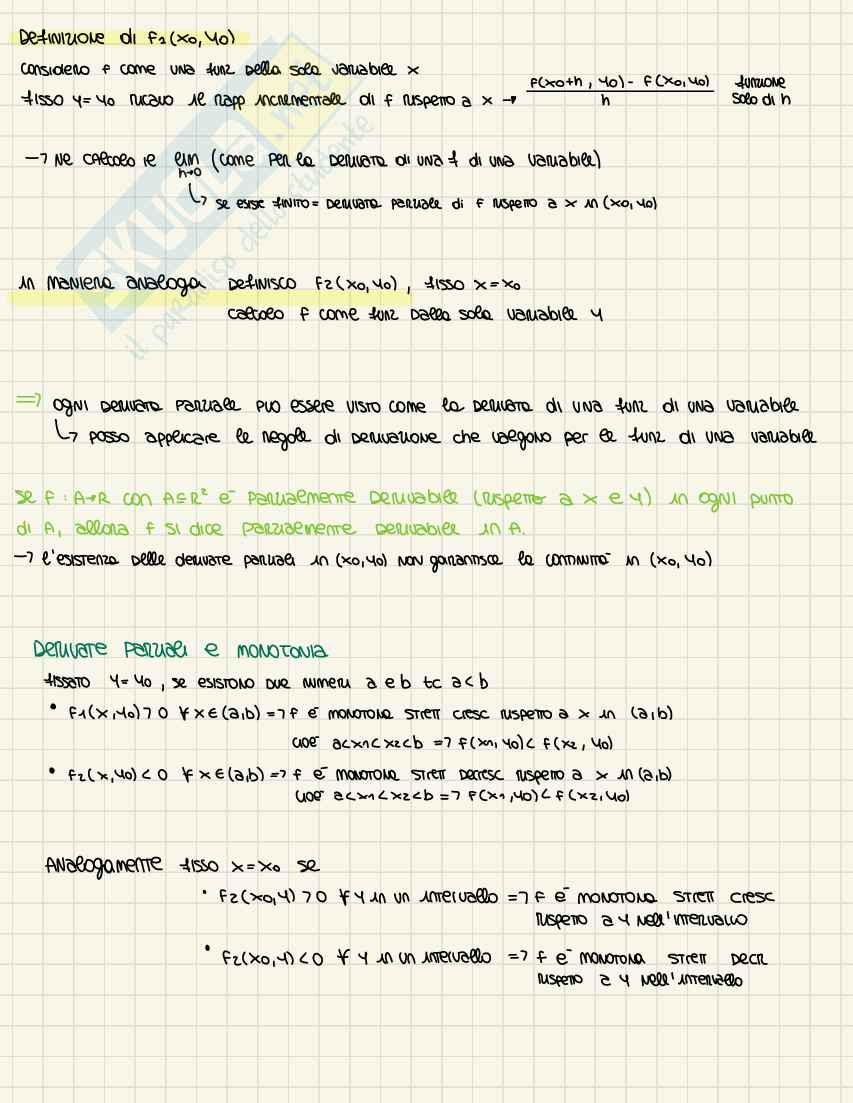 Definizione di f1(x0, y0)
considero f come una funz della sola variabile x
fisso y=y0 ricavo il rapp incrementale di f rispetto a x → f(x0+h, y0) - f(x0, y0) / h funzione solo di h
→ ne calcolo il lim h→0 (come per la derivata di una f di una variabile)
↳ se esiste finito = derivata parziale di f rispetto a x in (x0, y0)
in maniera analoga definisco f2(x0, y0), fisso x=x0
calcolo f come funz della sola variabile y
⇒ ogni derivata parziale può essere visto come la derivata di una funz di una variabile
↳ posso applicare le regole di derivazione che valgono per le funz di una variabile
se f : A→R con A⊆R² è parzialmente derivabile (rispetto a x e y) in ogni punto
di A, allora f si dice parzialmente derivabile in A.
→ l'esistenza delle derivate parziali in (x0, y0) non garantisce la continuità in (x0, y0)
Derivate parziali e monotonia
fissato y=y0, se esistono due numeri a e b tc a<b
• f1(x, y0)>0 ∀x∈(a,b) ⇒ f è monotona strett cresc rispetto a x in (a,b)
cioè a<x1<x2<b ⇒ f(x1, y0)< f(x2, y0)
• f2(x, y0)<0 ∀x∈(a,b) ⇒ f è monotona strett decresc rispetto a x in (a,b)
cioè a<x1<x2<b ⇒ f(x1, y0)< f(x2, y0)
Analogamente fisso x=x0 se
• f2(x0, y)>0 ∀y in un intervallo ⇒ f è monotona strett cresc
rispetto a y nell'intervallo
• f2(x0, y)<0 ∀ y in un intervallo ⇒ f è monotona strett decr
rispetto a y nell'intervallo
SKUOLA.net
il paradiso dello studente